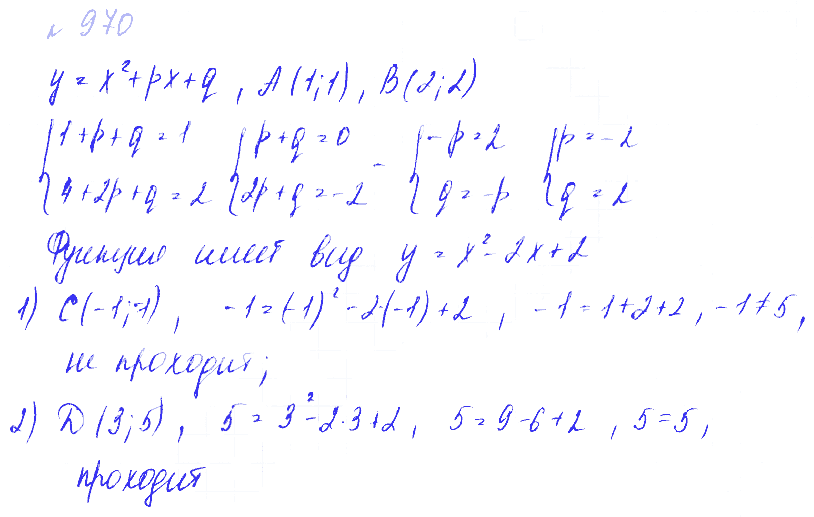 № 970
y = x² + px + q , A(1;1), B(2;2)
{1+p+q=1 {p+q=0 - {-p=2 {p=-2
{4+2p+q=2 {2p+q=-2 {q=-p {q=2
Функция имеет вид y = x² - 2x + 2
1) C(-1;-1), -1=(-1)²-2·(-1)+2 , -1=1+2+2, -1≠5,
не проходит;
2) D(3;5), 5=3²-2·3+2, 5=9-6+2 , 5=5,
проходит